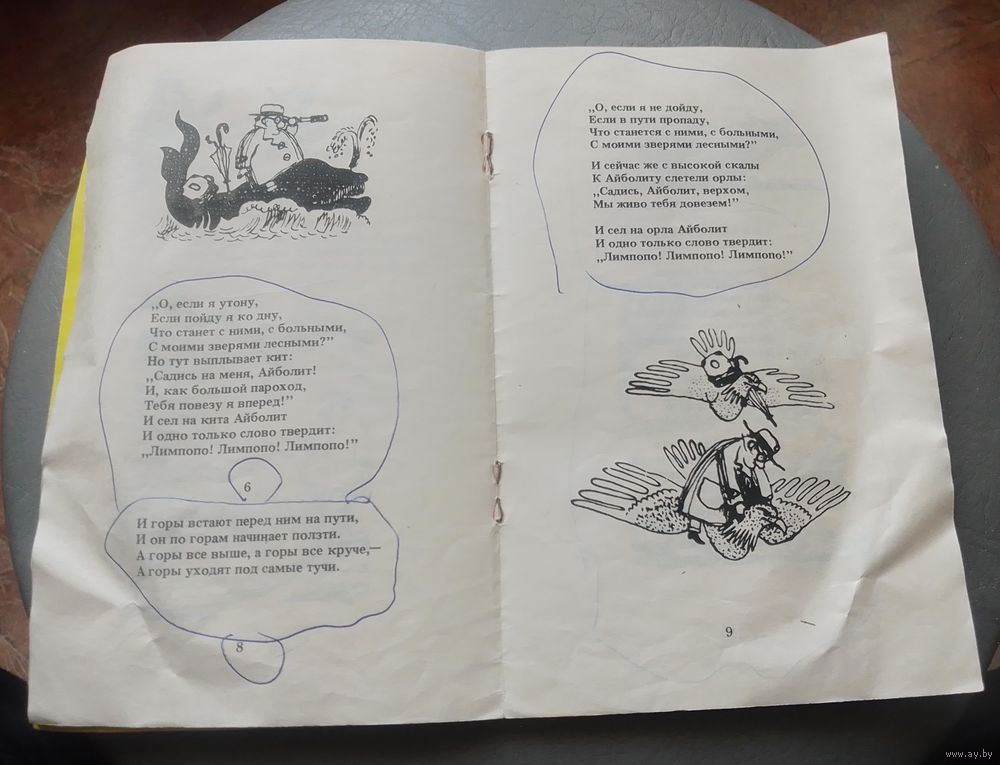 „О, если я утону,
Если пойду я ко дну,
Что станет с ними, с больными,
С моими зверями лесными?"
Но тут выплывает кит:
„Садись на меня, Айболит!
И, как большой пароход,
Тебя повезу я вперед!"
И сел на кита Айболит
И одно только слово твердит:
„Лимпопо! Лимпопо! Лимпопо!"
6
И горы встают перед ним на пути,
И он по горам начинает ползти.
А горы все выше, а горы все круче,—
А горы уходят под самые тучи.
8
„О, если я не дойду,
Если в пути пропаду,
Что станется с ними, с больными,
С моими зверями лесными?"
И сейчас же с высокой скалы
К Айболиту слетели орлы:
„Садись, Айболит, верхом,
Мы живо тебя довезем!"
И сел на орла Айболит
И одно только слово твердит:
„Лимпопо! Лимпопо! Лимпопо!"
9
www.ay.by